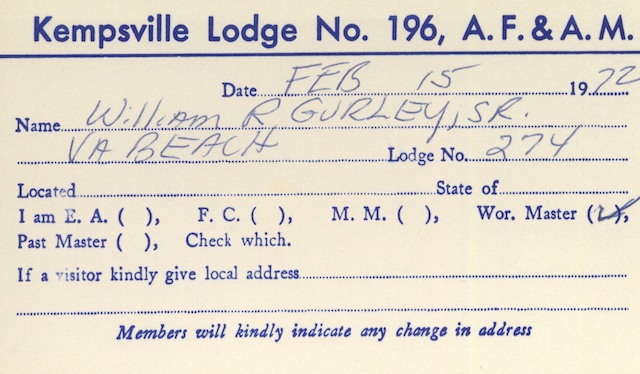 Kempsville Lodge No. 196, A. F. & A. M.
Date FEB 15 1972
Name William R GURLEY, SR.
VA BEACH Lodge No. 274
Located State of
I am E. A. ( ), F. C. ( ), M. M. ( ), Wor. Master (✓),
Past Master ( ), Check which.
If a visitor kindly give local address
Members will kindly indicate any change in address